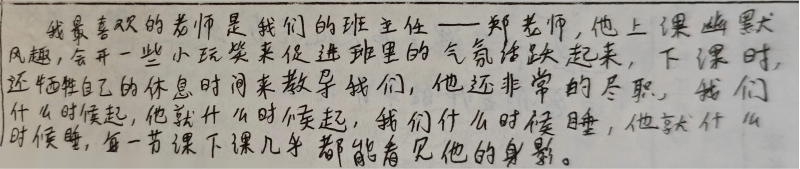 我最喜欢的老师是我们的班主任——郑老师，他上课幽默
风趣，会开一些小玩笑来促进班里的气氛活跃起来，下课时，
还牺牲自己的休息时间来教导我们，他还非常的尽职，我们
什么时候起，他就什么时候起，我们什么时候睡，他就什么
时候睡，每一节课下课几乎都能看见他的身影。